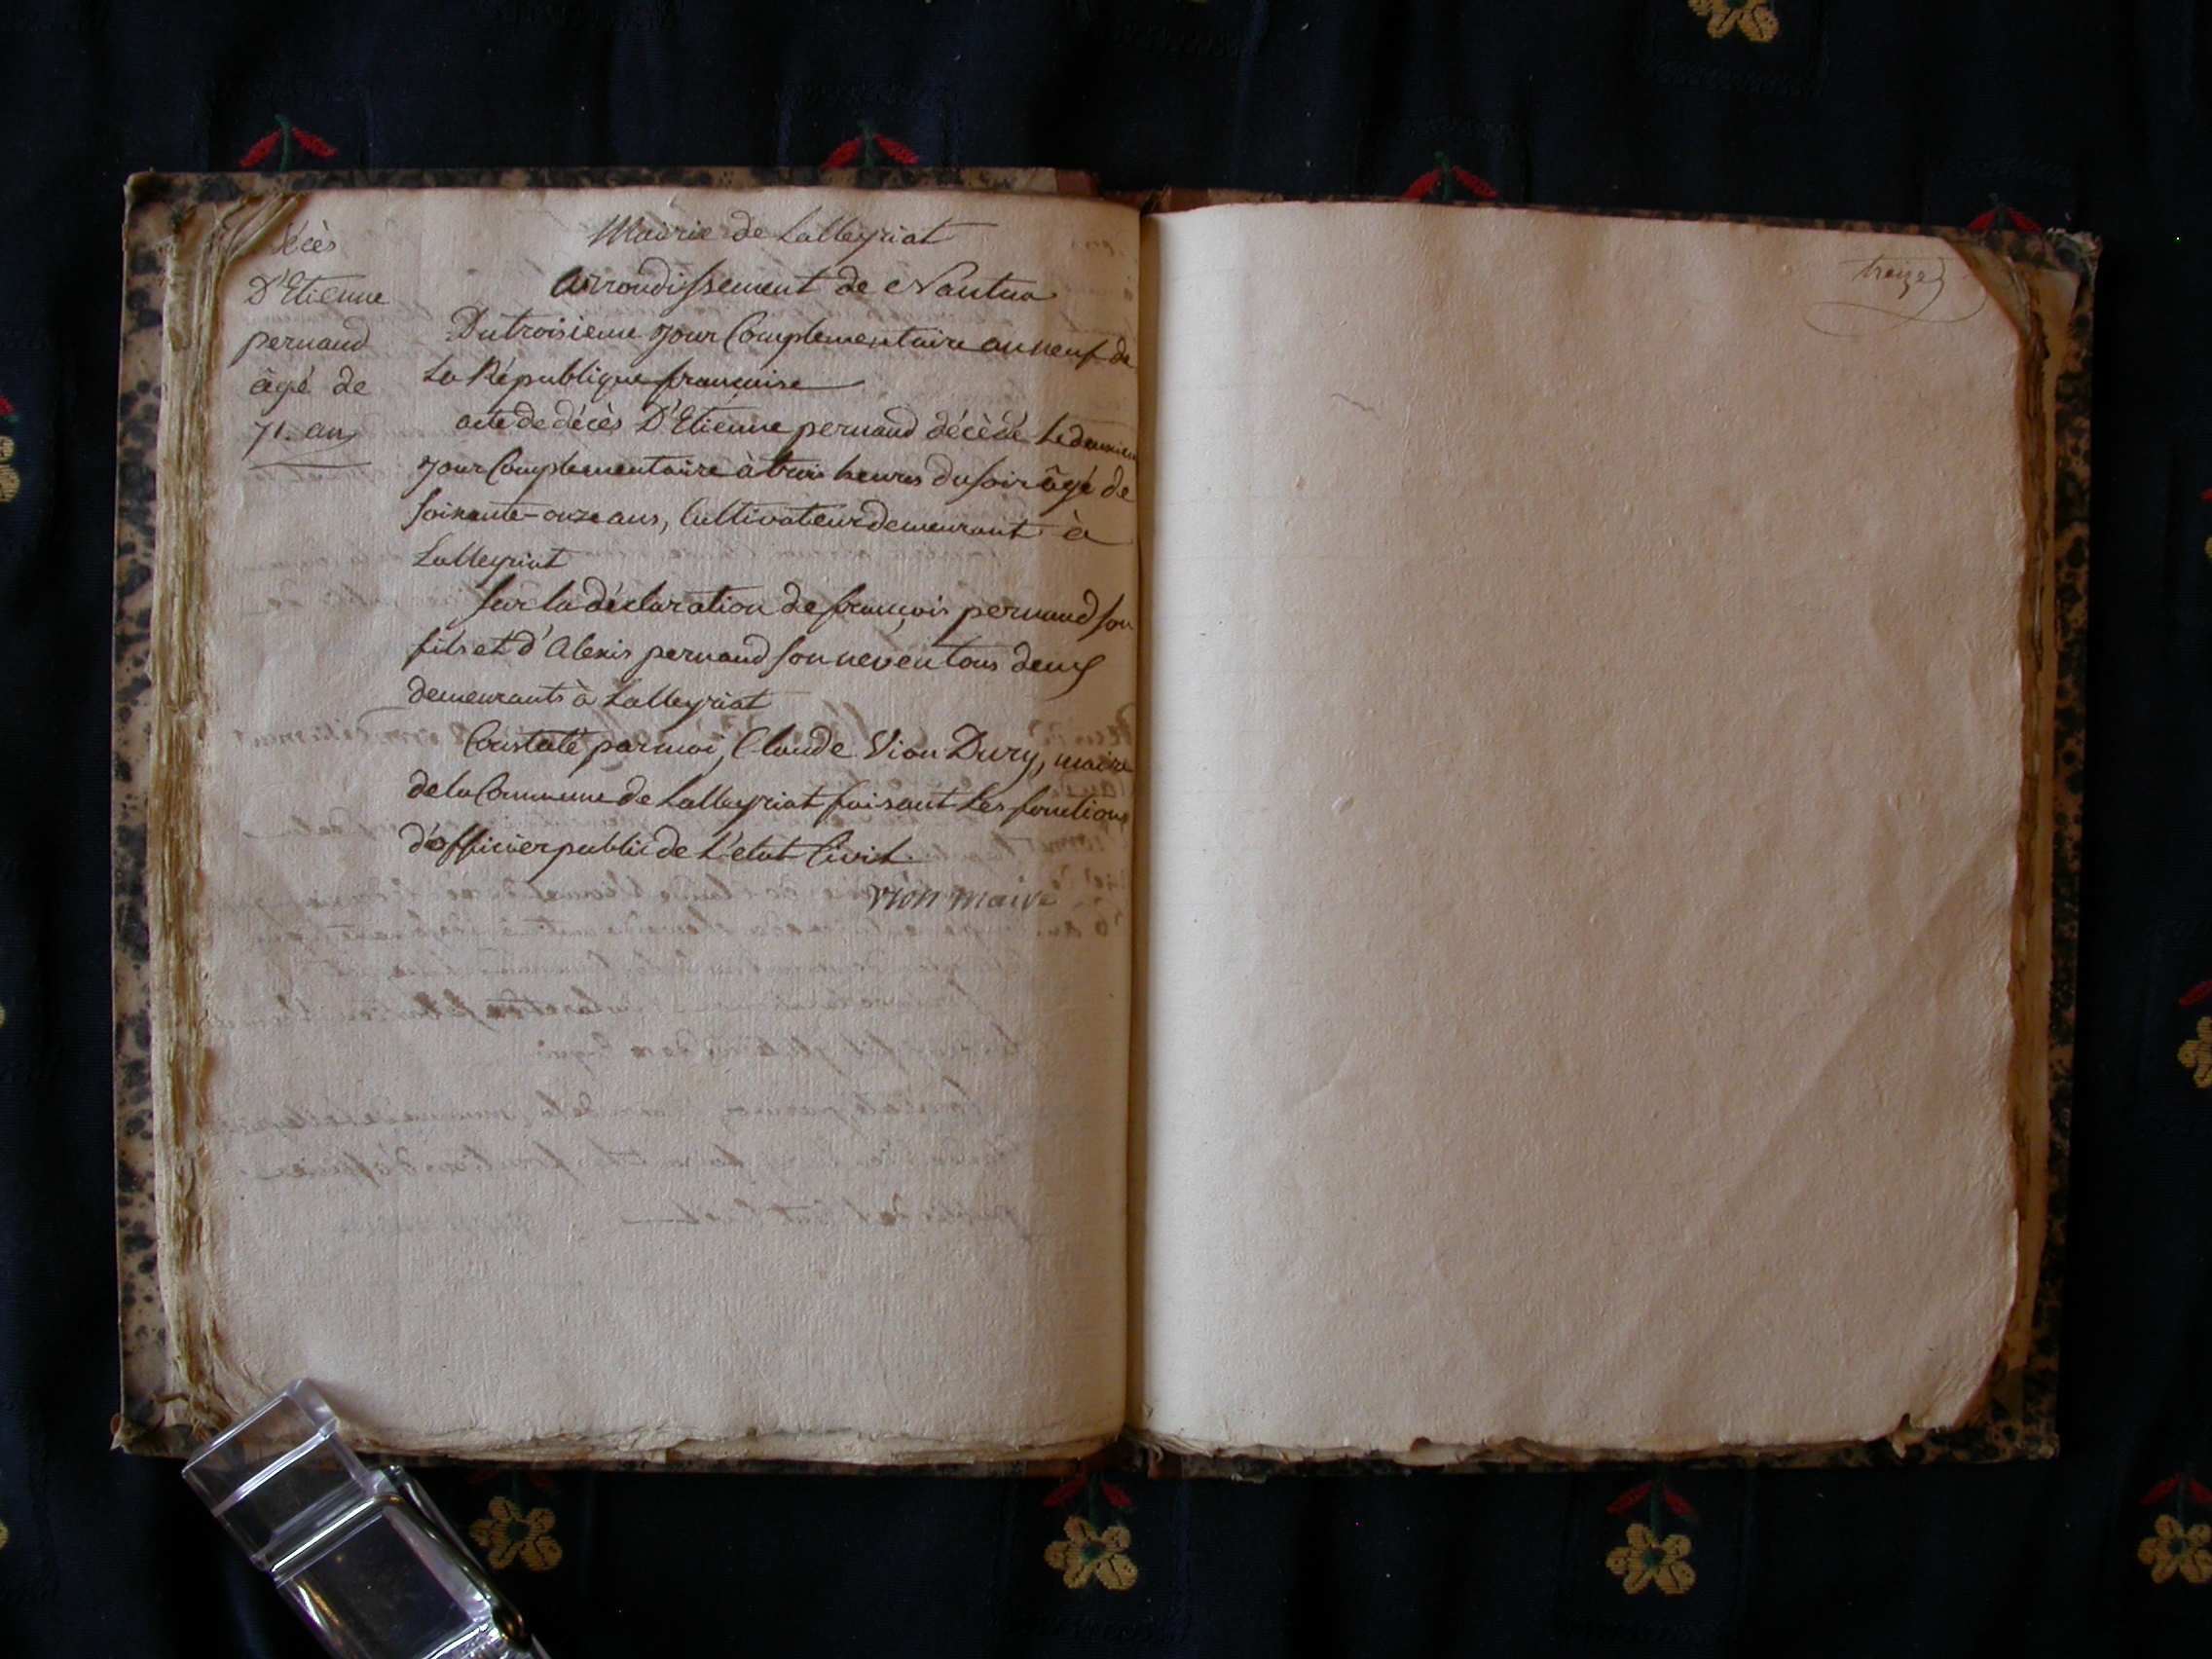 décès
D'Etienne
pernand
âgé de
71. ans
Mairie de Lalleyriat
arrondissement de Nantua
Du troisieme jour Complementaire an neuf de
La République française
acte de décès D'Etienne pernand décèdé Le
jour Complementaire à trois heures du soir âgé de
soixante-onze ans, Cultivateur demeurant à
Lalleyriat
sur la déclaration de françois pernand son
fils et d'Alexis pernand son neveu tous deux
demeurants à Lalleyriat
Constaté par moi, Claude Vion Dury, maire
de la Commune de Lalleyriat faisant Les fonctions
d'officier public de L'etat Civil.
vion maire
treize